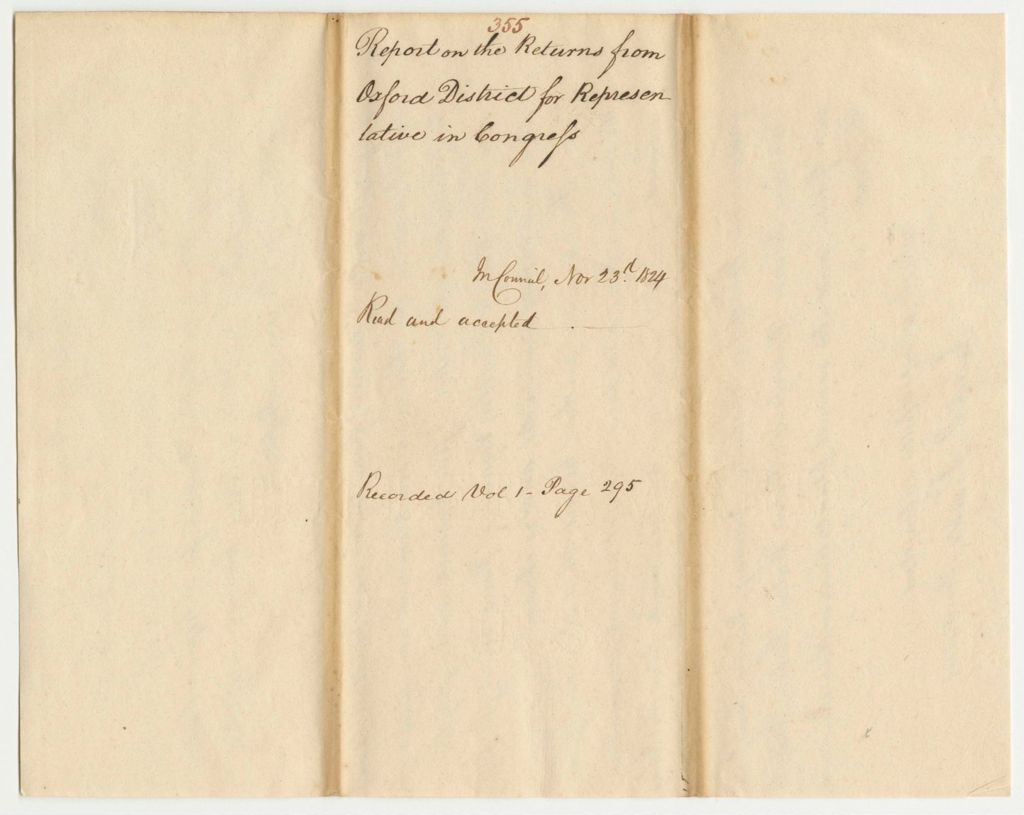 355
Report on the Returns from
Oxford District for Represen-
tative in Congress
In Council, Nov 23.d 1824
Read and accepted.
Recorded Vol 1 - Page 295